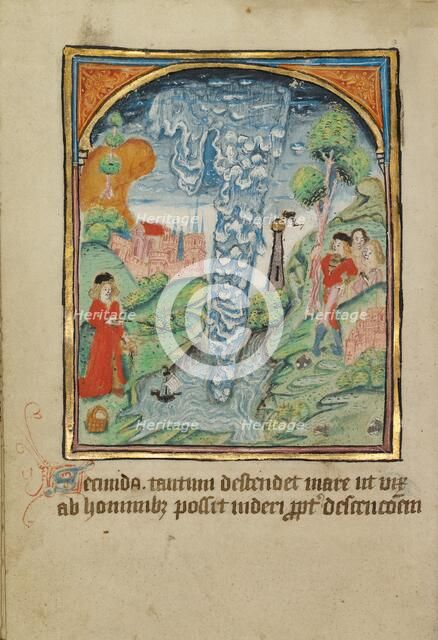 Secunda. tantum descendet mare ut vix
ab hominibꝫ possit videri ꝓpt' descencōem
Heritage
Heritage
Heritage
Heritage
Heritage
Heritage
Heritage
Heritage
Heritage